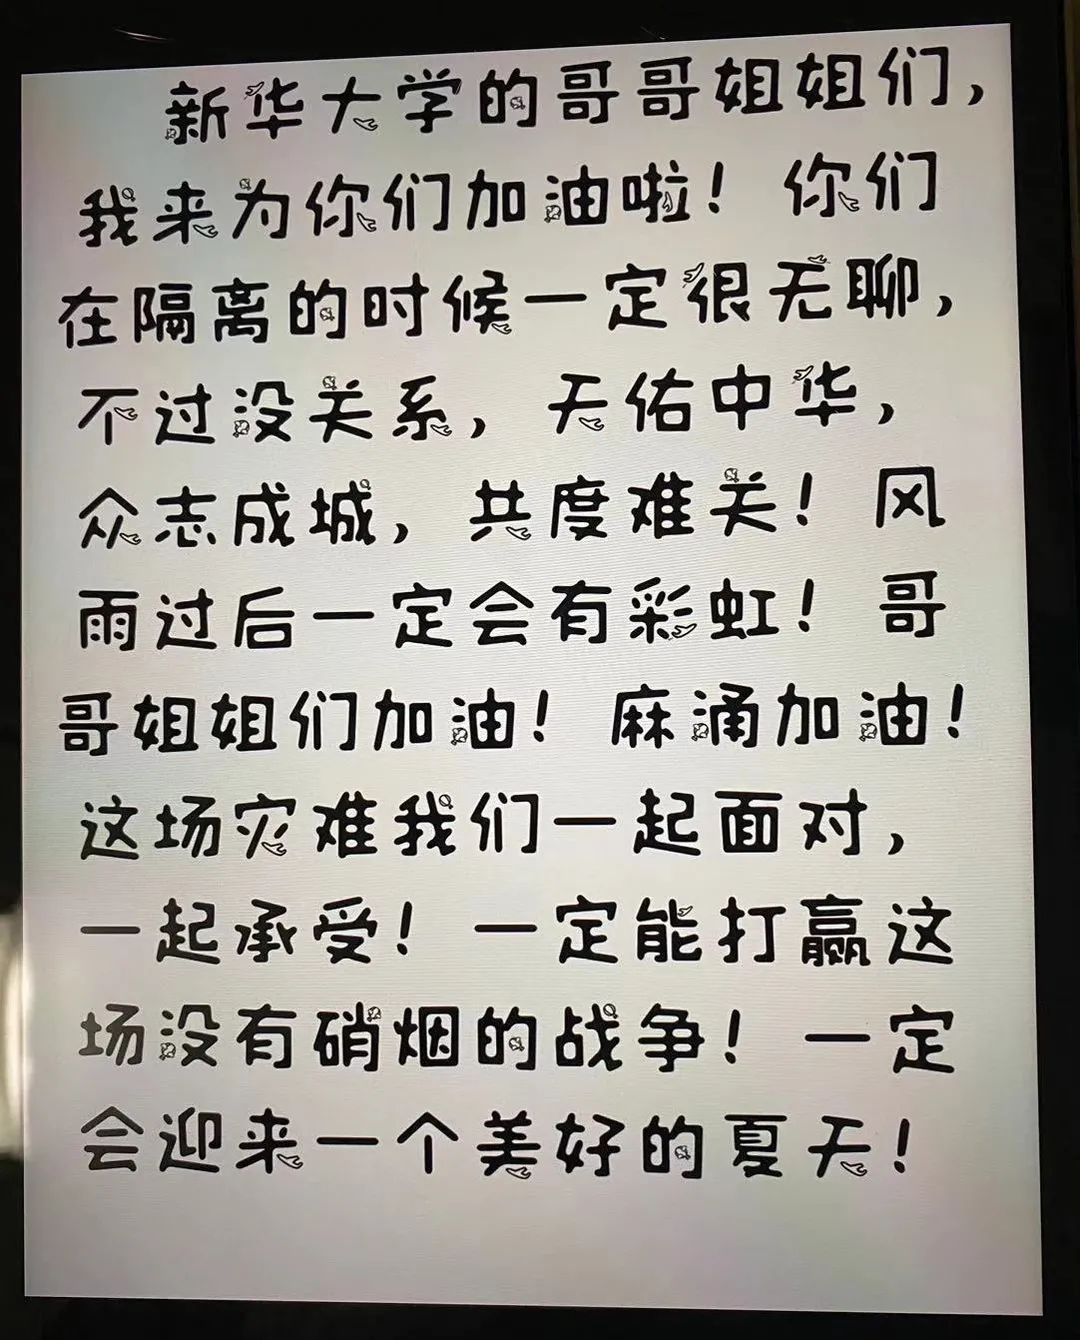 新华大学的哥哥姐姐们，
我来为你们加油啦！你们
在隔离的时候一定很无聊，
不过没关系，天佑中华，
众志成城，共度难关！风
雨过后一定会有彩虹！哥
哥姐姐们加油！麻涌加油！
这场灾难我们一起面对，
一起承受！一定能打赢这
场没有硝烟的战争！一定
会迎来一个美好的夏天！